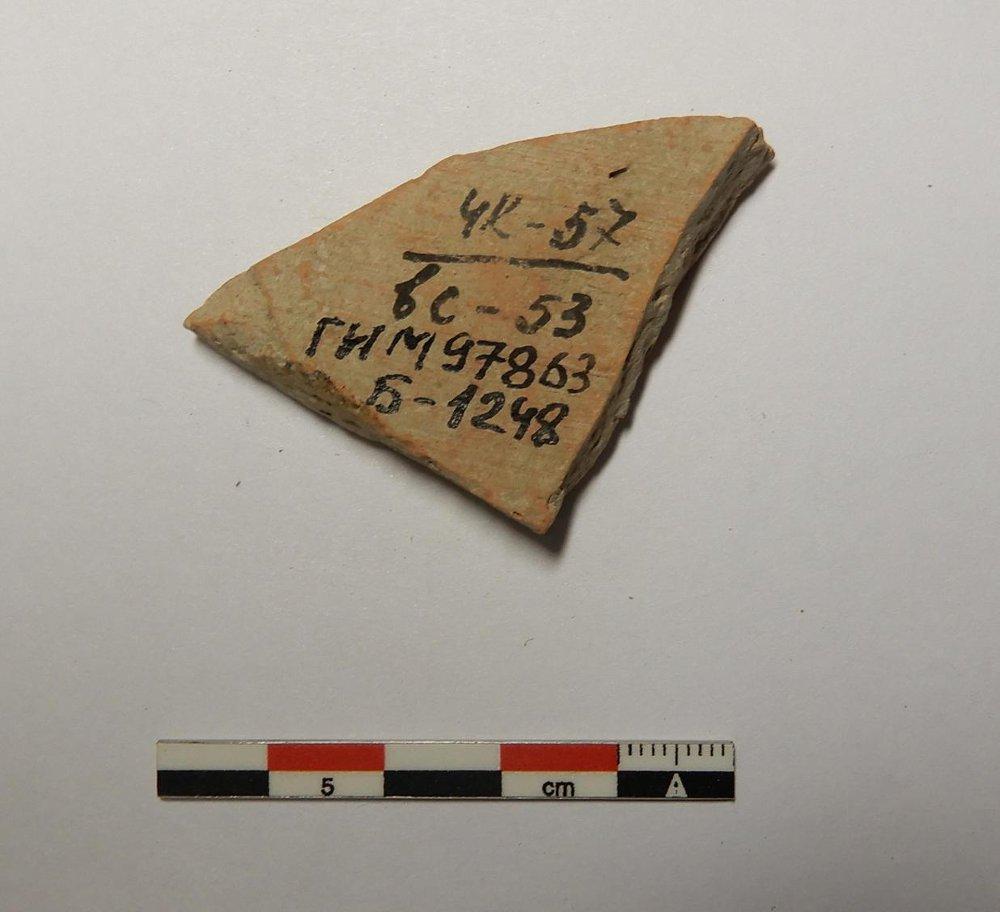 ЧК-57
вс-53
ГИМ97863
Б-1248
5 cm